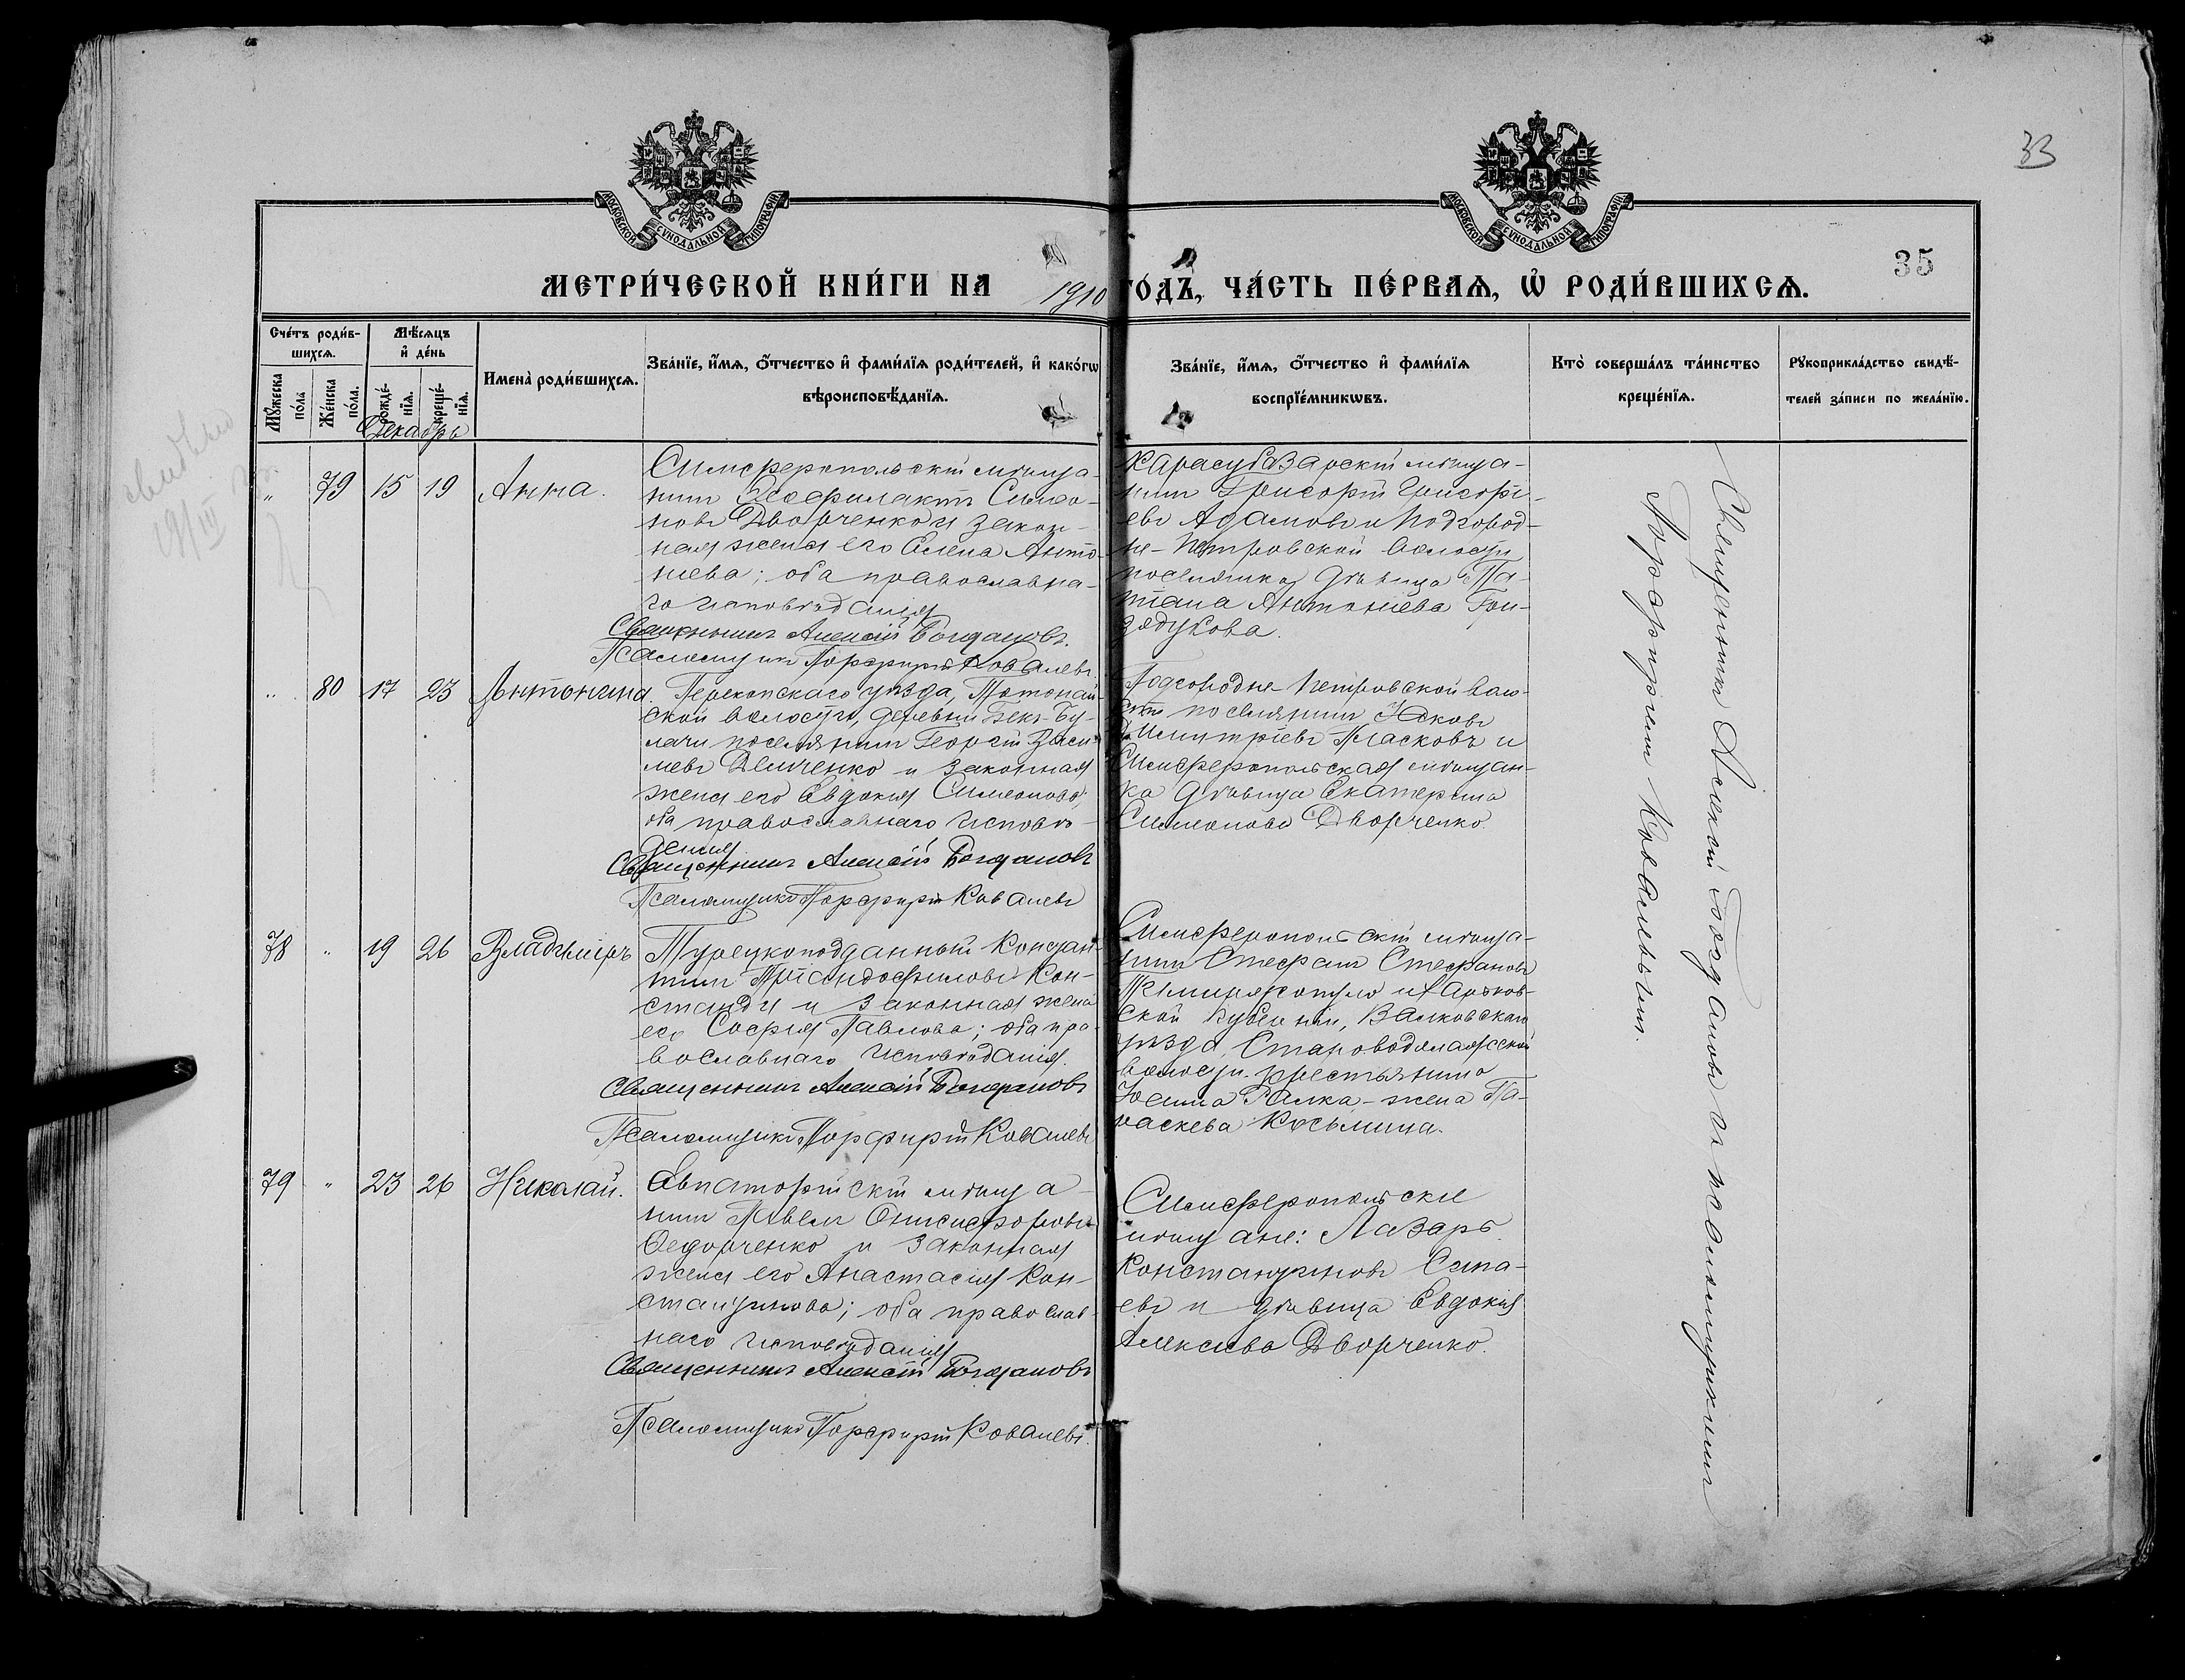 33
35
МОСКОВСКОЙ СѴНОДАЛЬНОЙ ТИПОГРАФІИ
МОСКОВСКОЙ СѴНОДАЛЬНОЙ ТИПОГРАФІИ
МЕТРИ́ЧЕСКОЙ КНИ́ГИ НА 1910 ГО́ДЪ, ЧА́СТЬ ПЕ́РВАѦ, Ѽ РОДИ́ВШИХСѦ.
Сче́тъ роди́в-
шихсѧ.
Мꙋ́жеска по́ла
Же́нска по́ла.
Мѣ́сѧцъ
и҆ де́нь
рожде́-
нїѧ.
креще́-
нїѧ.
Имена̀ роди́вшихсѧ.
Зва́нїе, и҆́мѧ, ѻ҆́тчество и҆ фами́лїѧ роди́телей, и҆ како́гѡ
вѣроисповѣ́данїѧ.
Зва́нїе, и҆́мѧ, ѻ҆́тчество и҆ фами́лїѧ
воспрїе́мникѡвъ.
Кто̀ соверша́лъ та́инство
креще́нїѧ.
Рꙋкоприкла́дство свидѣ́-
телей за́писи по жела́нїю.
Декабрь
" 79 15 19 Анна.
Симферопольскій мѣща-
нинъ Ѳеофилактъ Симео-
новъ Дворченко и закон-
ная жена его Елена Анто-
ніева; оба православна-
го исповѣданія
Священникъ Алексій Богдановъ.
Псаломщикъ Порфирій Ковалевъ.
Карасубазарскій мѣща-
нинъ Григорій Григорі-
евъ Адамовъ и Подгород-
не-Петровской волости
поселянка дѣвица Та-
тіана Антоніева
" 80 17 23 Антонина.
Перекопскаго уѣзда, Тотонай-
ской волости, деревни Бекъ-Бу-
лачи поселянинъ Георгій Васи-
льевъ Демченко и законная
жена его Евдокія Симеонова,
оба православнаго исповѣ-
данія
Священникъ Алексій Богдановъ
Псаломщикъ Порфирій Ковалевъ
Подгородне-Петровской воло-
сти поселянинъ Іаковъ
Димитріевъ Пласковъ и
Симферопольская мѣщан-
ка дѣвица Екатерина
Симеонова Дворченко.
78 " 19 26 Владиміръ
Турецкоподданный Констан-
тинъ Тріандофиловъ Кон-
станди и законная жена
его Софія Павлова; оба пра-
вославнаго исповѣданія.
Священникъ Алексій Богдановъ
Псаломщикъ Порфирій Ковалевъ
Симферопольскій мѣща-
нинъ Стефанъ Стефановъ
и Харьков-
ской губерніи, Валковскаго
уѣзда, Староводолажской
волости крестьянина
Галка - жена Па-
раскева Косьмина.
79 " 23 26 Николай.
Евпаторійскій мѣща-
нинъ Павелъ Онисифоровъ
Ѳедорченко и законная
жена его Анастасія Кон-
стантинова; оба православ-
наго исповѣданія
Священникъ Алексій Богдановъ
Псаломщикъ Порфирій Ковалевъ.
Симферопольскіе
мѣщане: Лазарь
Константиновъ
евъ и дѣвица Евдокія
Алексіева Дворченко.
Священникъ Алексій Богдановъ съ псаломщикомъ
Порфиріемъ Ковалевымъ.